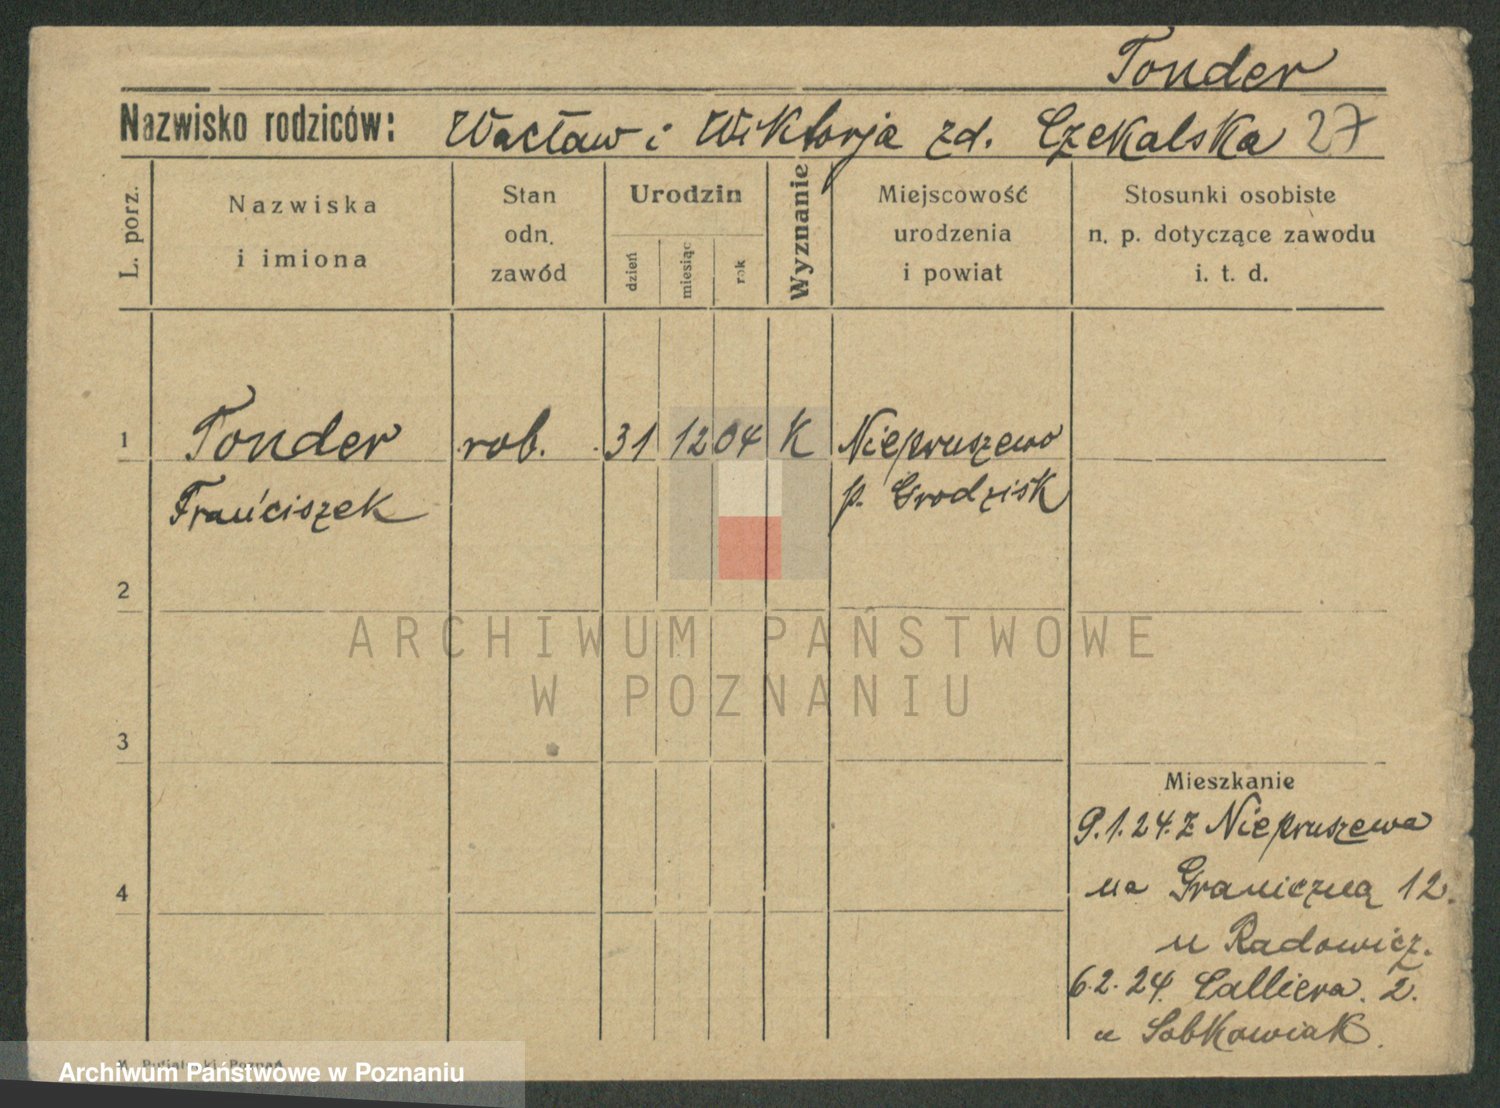 Tonder
Nazwisko rodziców: Wacław i Wiktorja zd. Czekalska 27
L. porz.
Nazwiska
i imiona
Stan
odn.
zawód
Urodzin
dzień
miesiąc
rok
Wyznanie
Miejscowość
urodzenia
i powiat
Stosunki osobiste
n. p. dotyczące zawodu
i. t. d.
1 Tonder rob. 31 12 04 K Niepruszewo
Franciszek p. Grodzisk
2
ARCHIWUM PAŃSTWOWE
W POZNANIU
3
Mieszkanie
9.1.24. z Niepruszewa
4
na Graniczną 12.
u Radowicz.
6.2.24. Calliera. 2.
u Sobkowiak.
Poznań
Archiwum Państwowe w Poznaniu